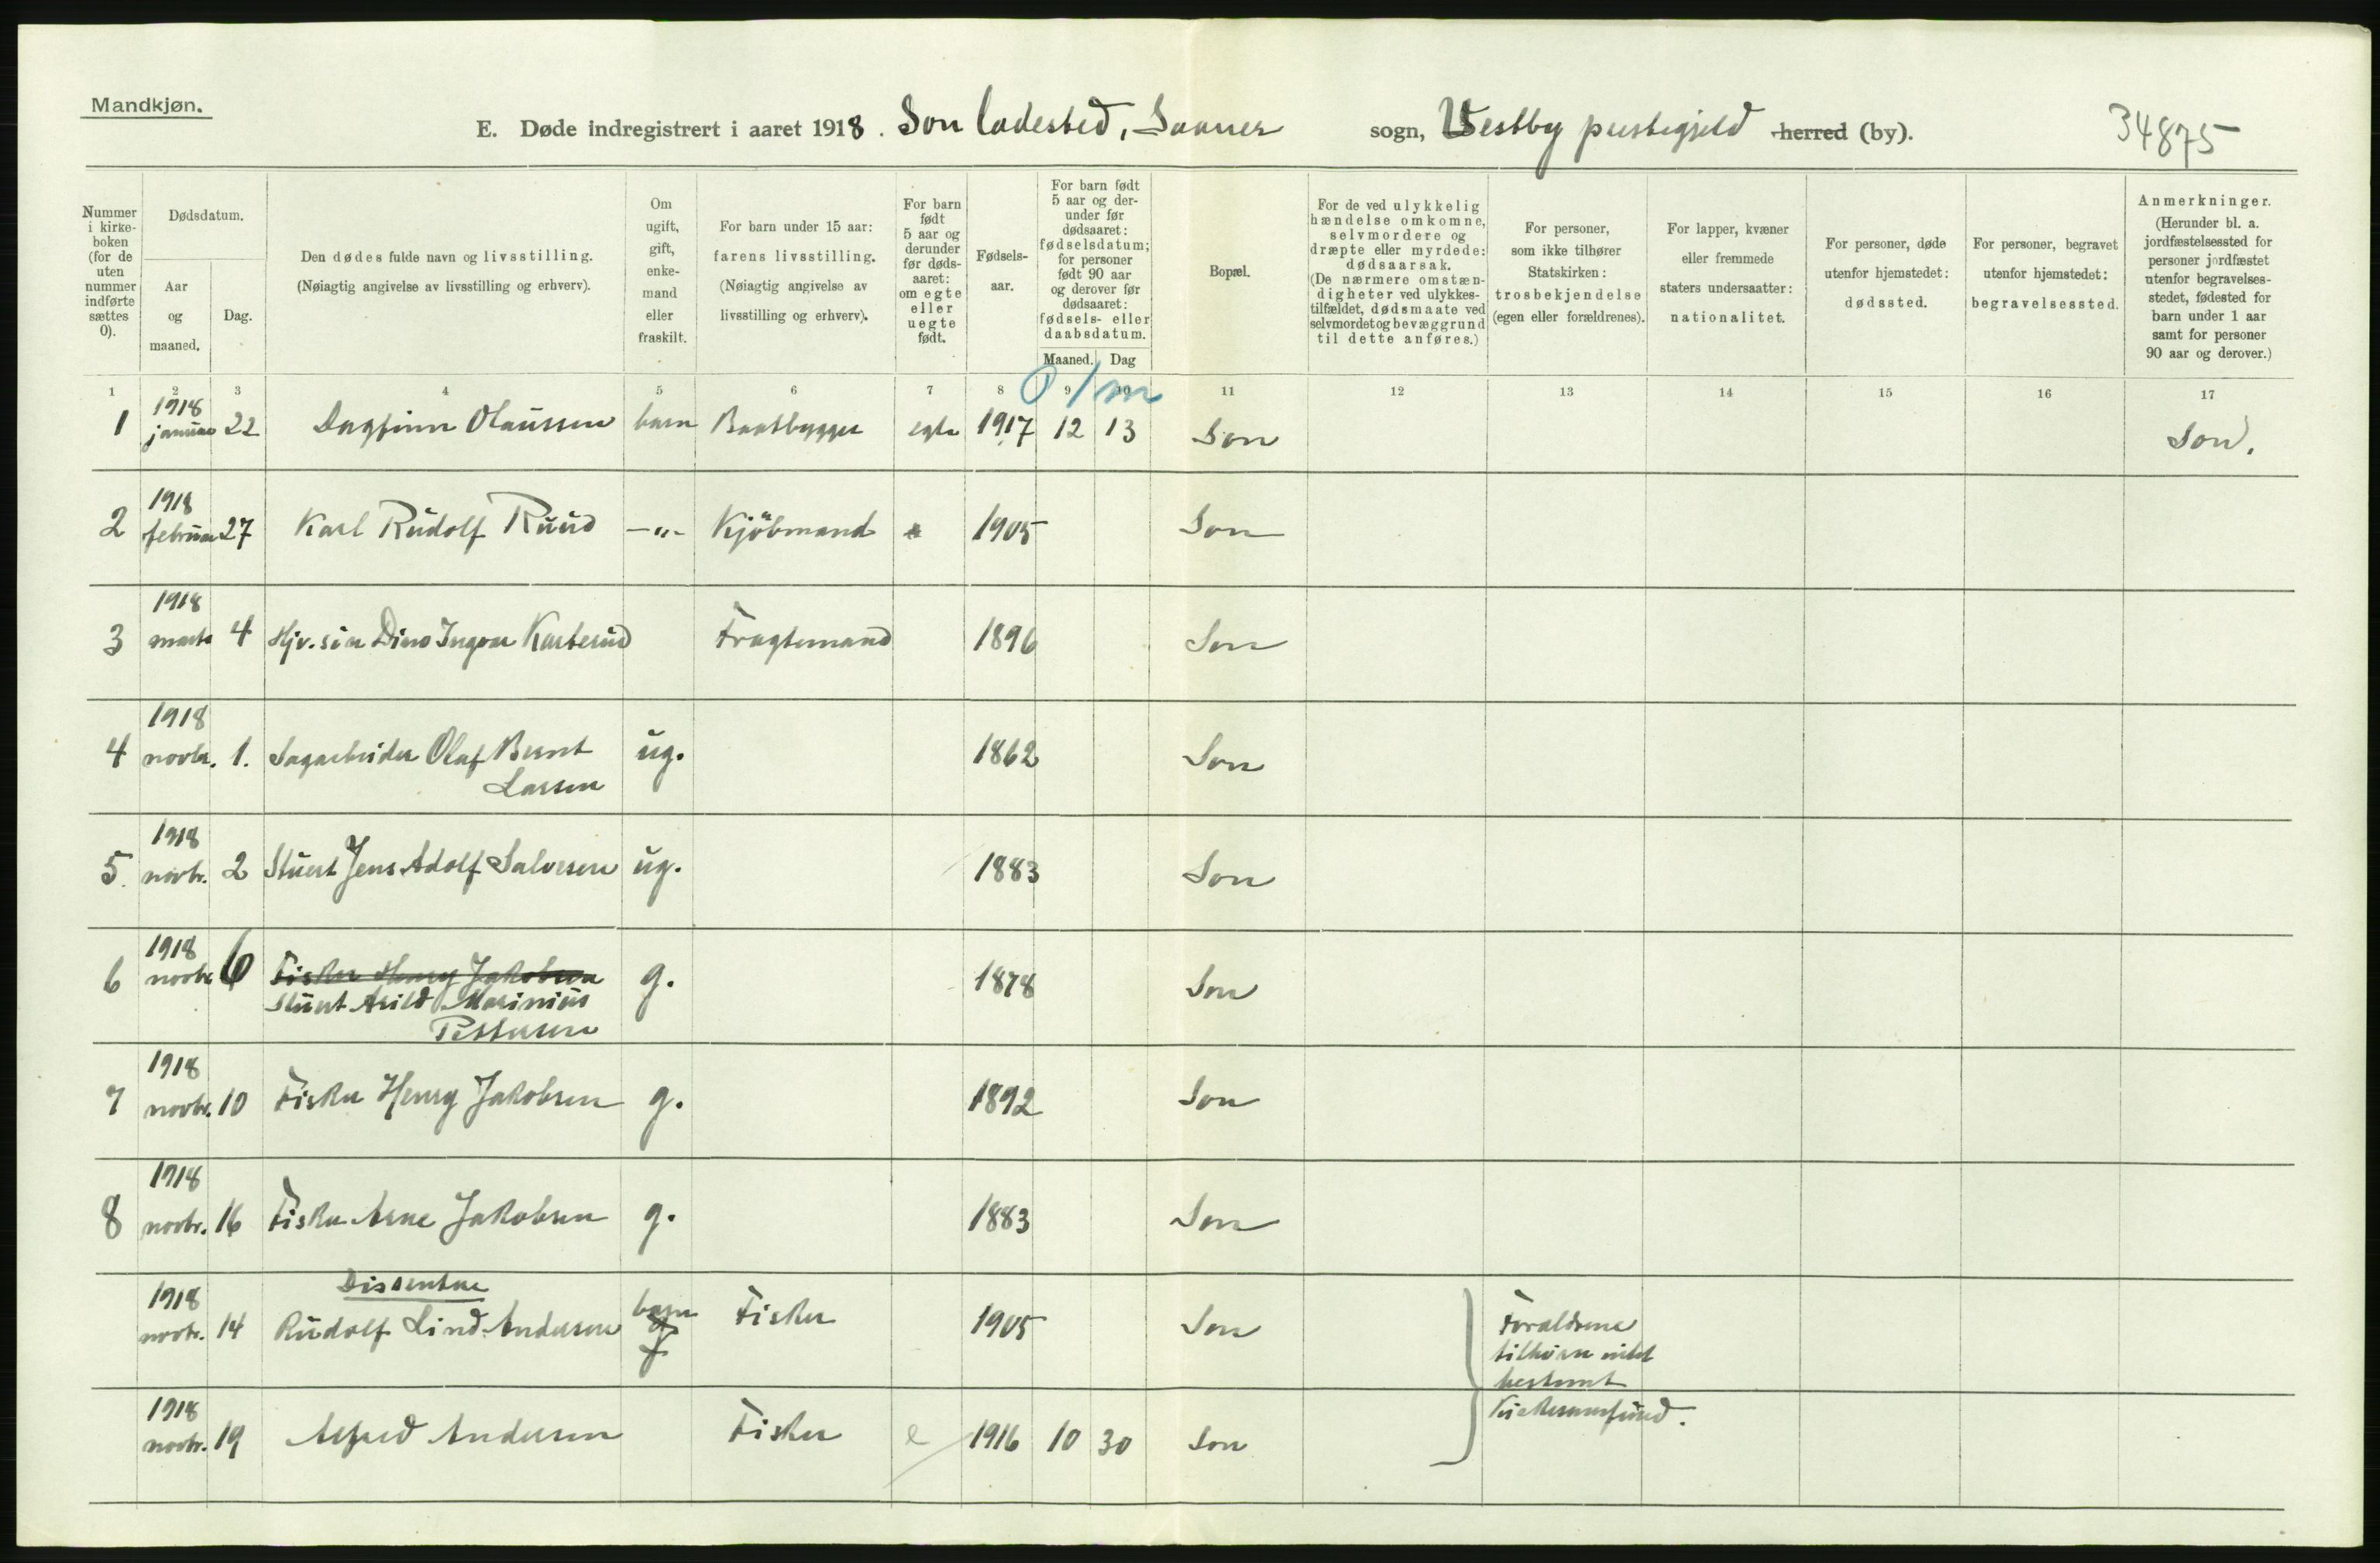 Mandkjøn.
E. Døde indregistrert i aaret 1918. Son ladested, Saaner sogn, Vestby prestegjeld herred (by).
34875
Nummer i kirke-boken (for de uten nummer indførte sættes 0).
Dødsdatum.
Aar og maaned.
Dag.
Den dødes fulde navn og livsstilling.
(Nøiagtig angivelse av livsstilling og erhverv).
Om ugift, gift, enke-mand eller fraskilt.
For barn under 15 aar: farens livsstilling.
(Nøiagtig angivelse av livsstilling og erhverv).
For barn født 5 aar og derunder før døds-aaret: om egte eller uegte født.
Fødsels-aar.
For barn født 5 aar og der-under før dødsaaret: fødselsdatum; for personer født 90 aar og derover før dødsaaret: fødsels- eller daabsdatum.
Maaned. Dag
Bopæl.
For de ved ulykkelig hændelse omkomne, selvmordere og dræpte eller myrdede: dødsaarsak.
(De nærmere omstæn-digheter ved ulykkes-tilfældet, dødsmaate ved selvmordet og bevæggrund til dette anføres.)
For personer, som ikke tilhører Statskirken: trosbekjendelse (egen eller forældrenes).
For lapper, kvæner eller fremmede staters undersaatter: nationalitet.
For personer, døde utenfor hjemstedet: dødssted.
For personer, begravet utenfor hjemstedet: begravelsessted.
Anmerkninger.
(Herunder bl. a. jordfæstelsessted for personer jordfæstet utenfor begravelses-stedet, fødested for barn under 1 aar samt for personer 90 aar og derover.)
1 2 3 4 5 6 7 8 9 10 11 12 13 14 15 16 17
0/m
1 1918 januar 22 Dagfinn Olaussen barn Baatbygger egte 1917 12 13 Son Son.
2 1918 februar 27 Karl Rudolf Ruud -"- Kjöbmand 1905 Son
3 1918 marts 4 Dins Ingvar Karterud Fragtemand 1896 Son
4 1918 novbr. 1. Sagarbeider Olaf Bernt
Larsen ug. 1862 Son
5. 1918 novbr. 2 Stuert Jens Adolf Salvesen ug. 1883 Son
6 1918 novbr. 6 Fisker Henry Jakobsen g. 1878 Son
Stuert Arild Marinius
Pettersen
7 1918 novbr. 10 Fisker Henry Jakobsen g. 1892 Son
8 1918 novbr. 16 Fisker Arne Jakobsen g. 1883 Son
Dissentere
1918 novbr. 14 Rudolf Lind Andersen barn Fisker 1905 Son
Foraldrene
tilhörer intet
bestemt
Kirkesamfund.
1918 novbr. 19 Alfred Andersen Fisker e 1916 10 30 Son